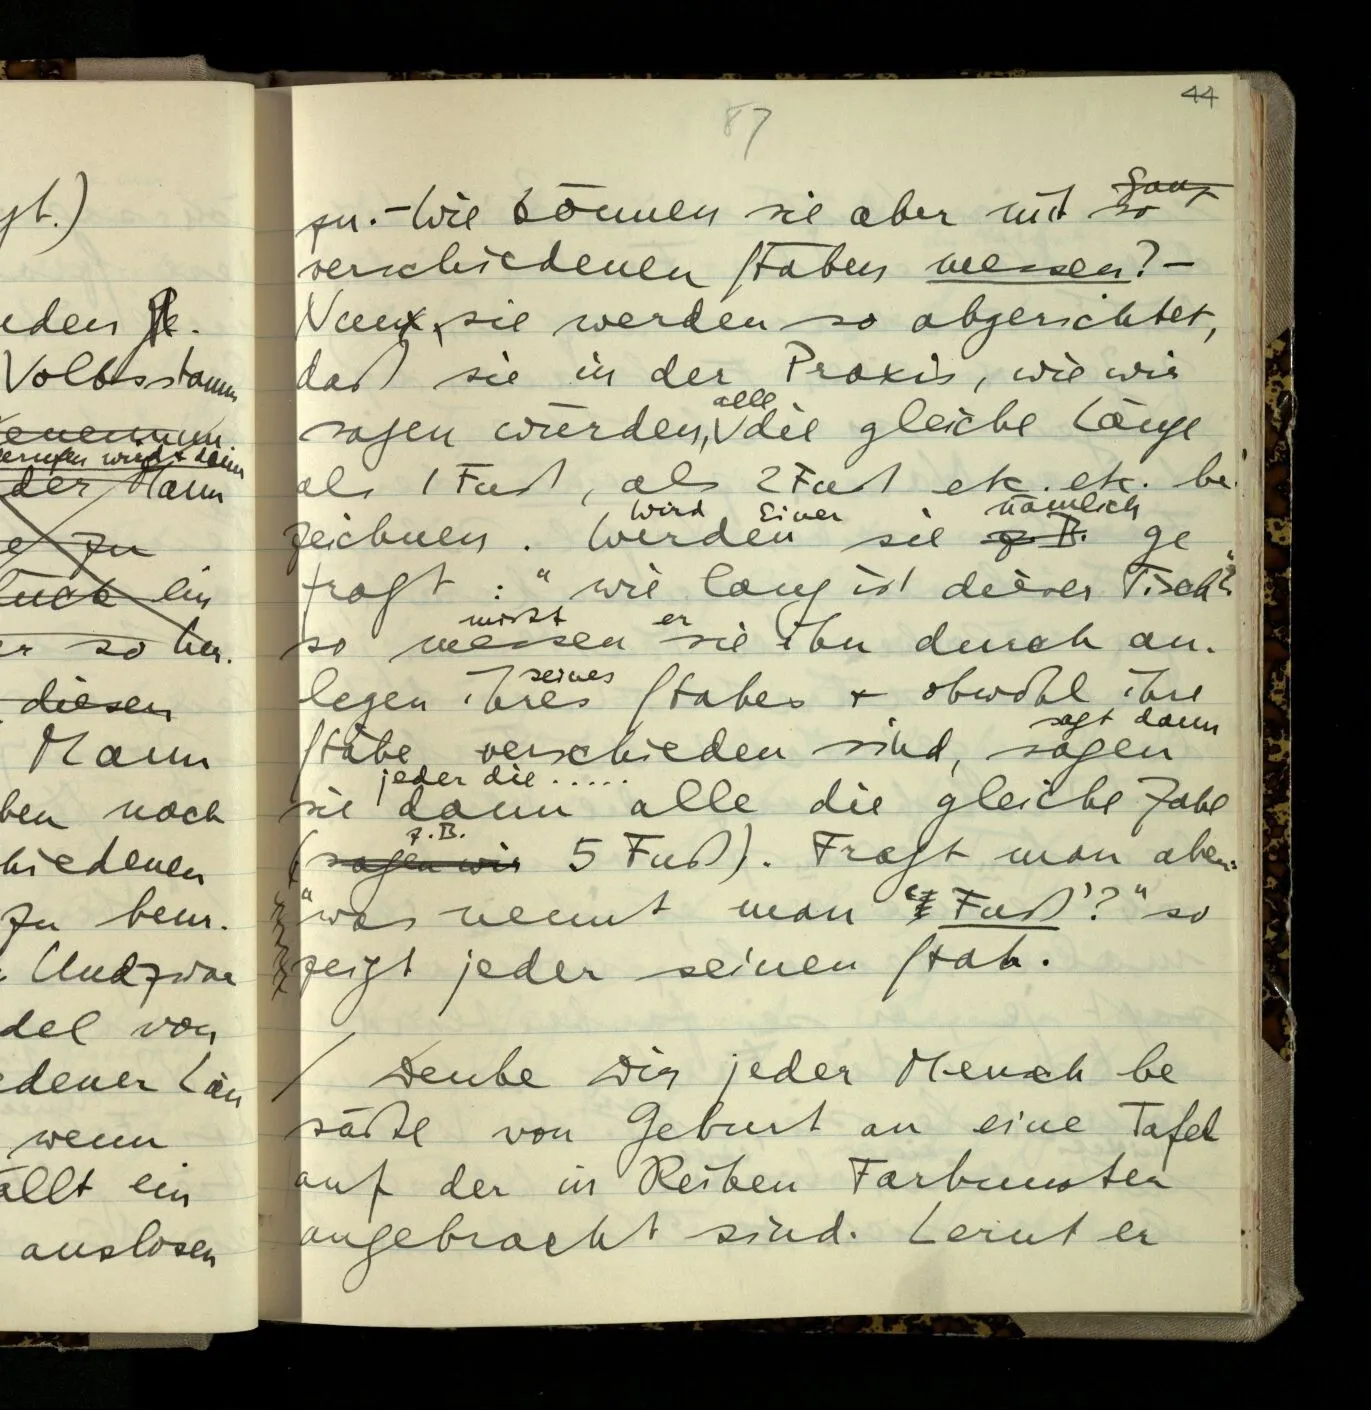 gt.)
Volksstamm
der Mann
zu
ein
er so her.
diesen
Mann
ben noch
hiedenen
zu bem.
Und zwar
del von
edener Län
wenn
ällt ein
auslosen
44
87
ganz
zu. – Wie können sie aber mit so
verschiedenen Stäben messen? –
Nun, sie werden so abgerichtet,
daß sie in der Praxis, wie wir
alle
sagen würden, die gleiche Länge
als 1 Fuß, als 2 Fuß etc. etc. be
wird Einer nämlich
zeichnen. Werden sie z.B. ge
fragt: "wie lang ist dieser Tisch?"
mißt er
so messen sie ihn durch an-
seines
legen ihres Stabes + obwohl ihre
sagt dann
Stäbe verschieden sind, sagen
jeder die.....
sie dann alle die gleiche Zahl
z.B.
(sagen wir 5 Fuß). Fragt man aber:
"was nennt man 'Fuß'?" so
zeigt jeder seinen Stab.
/ Denke Dir jeder Mensch be
säße von Geburt an eine Tafel
auf der in Reihen Farbmuster
angebracht sind. Lernt er